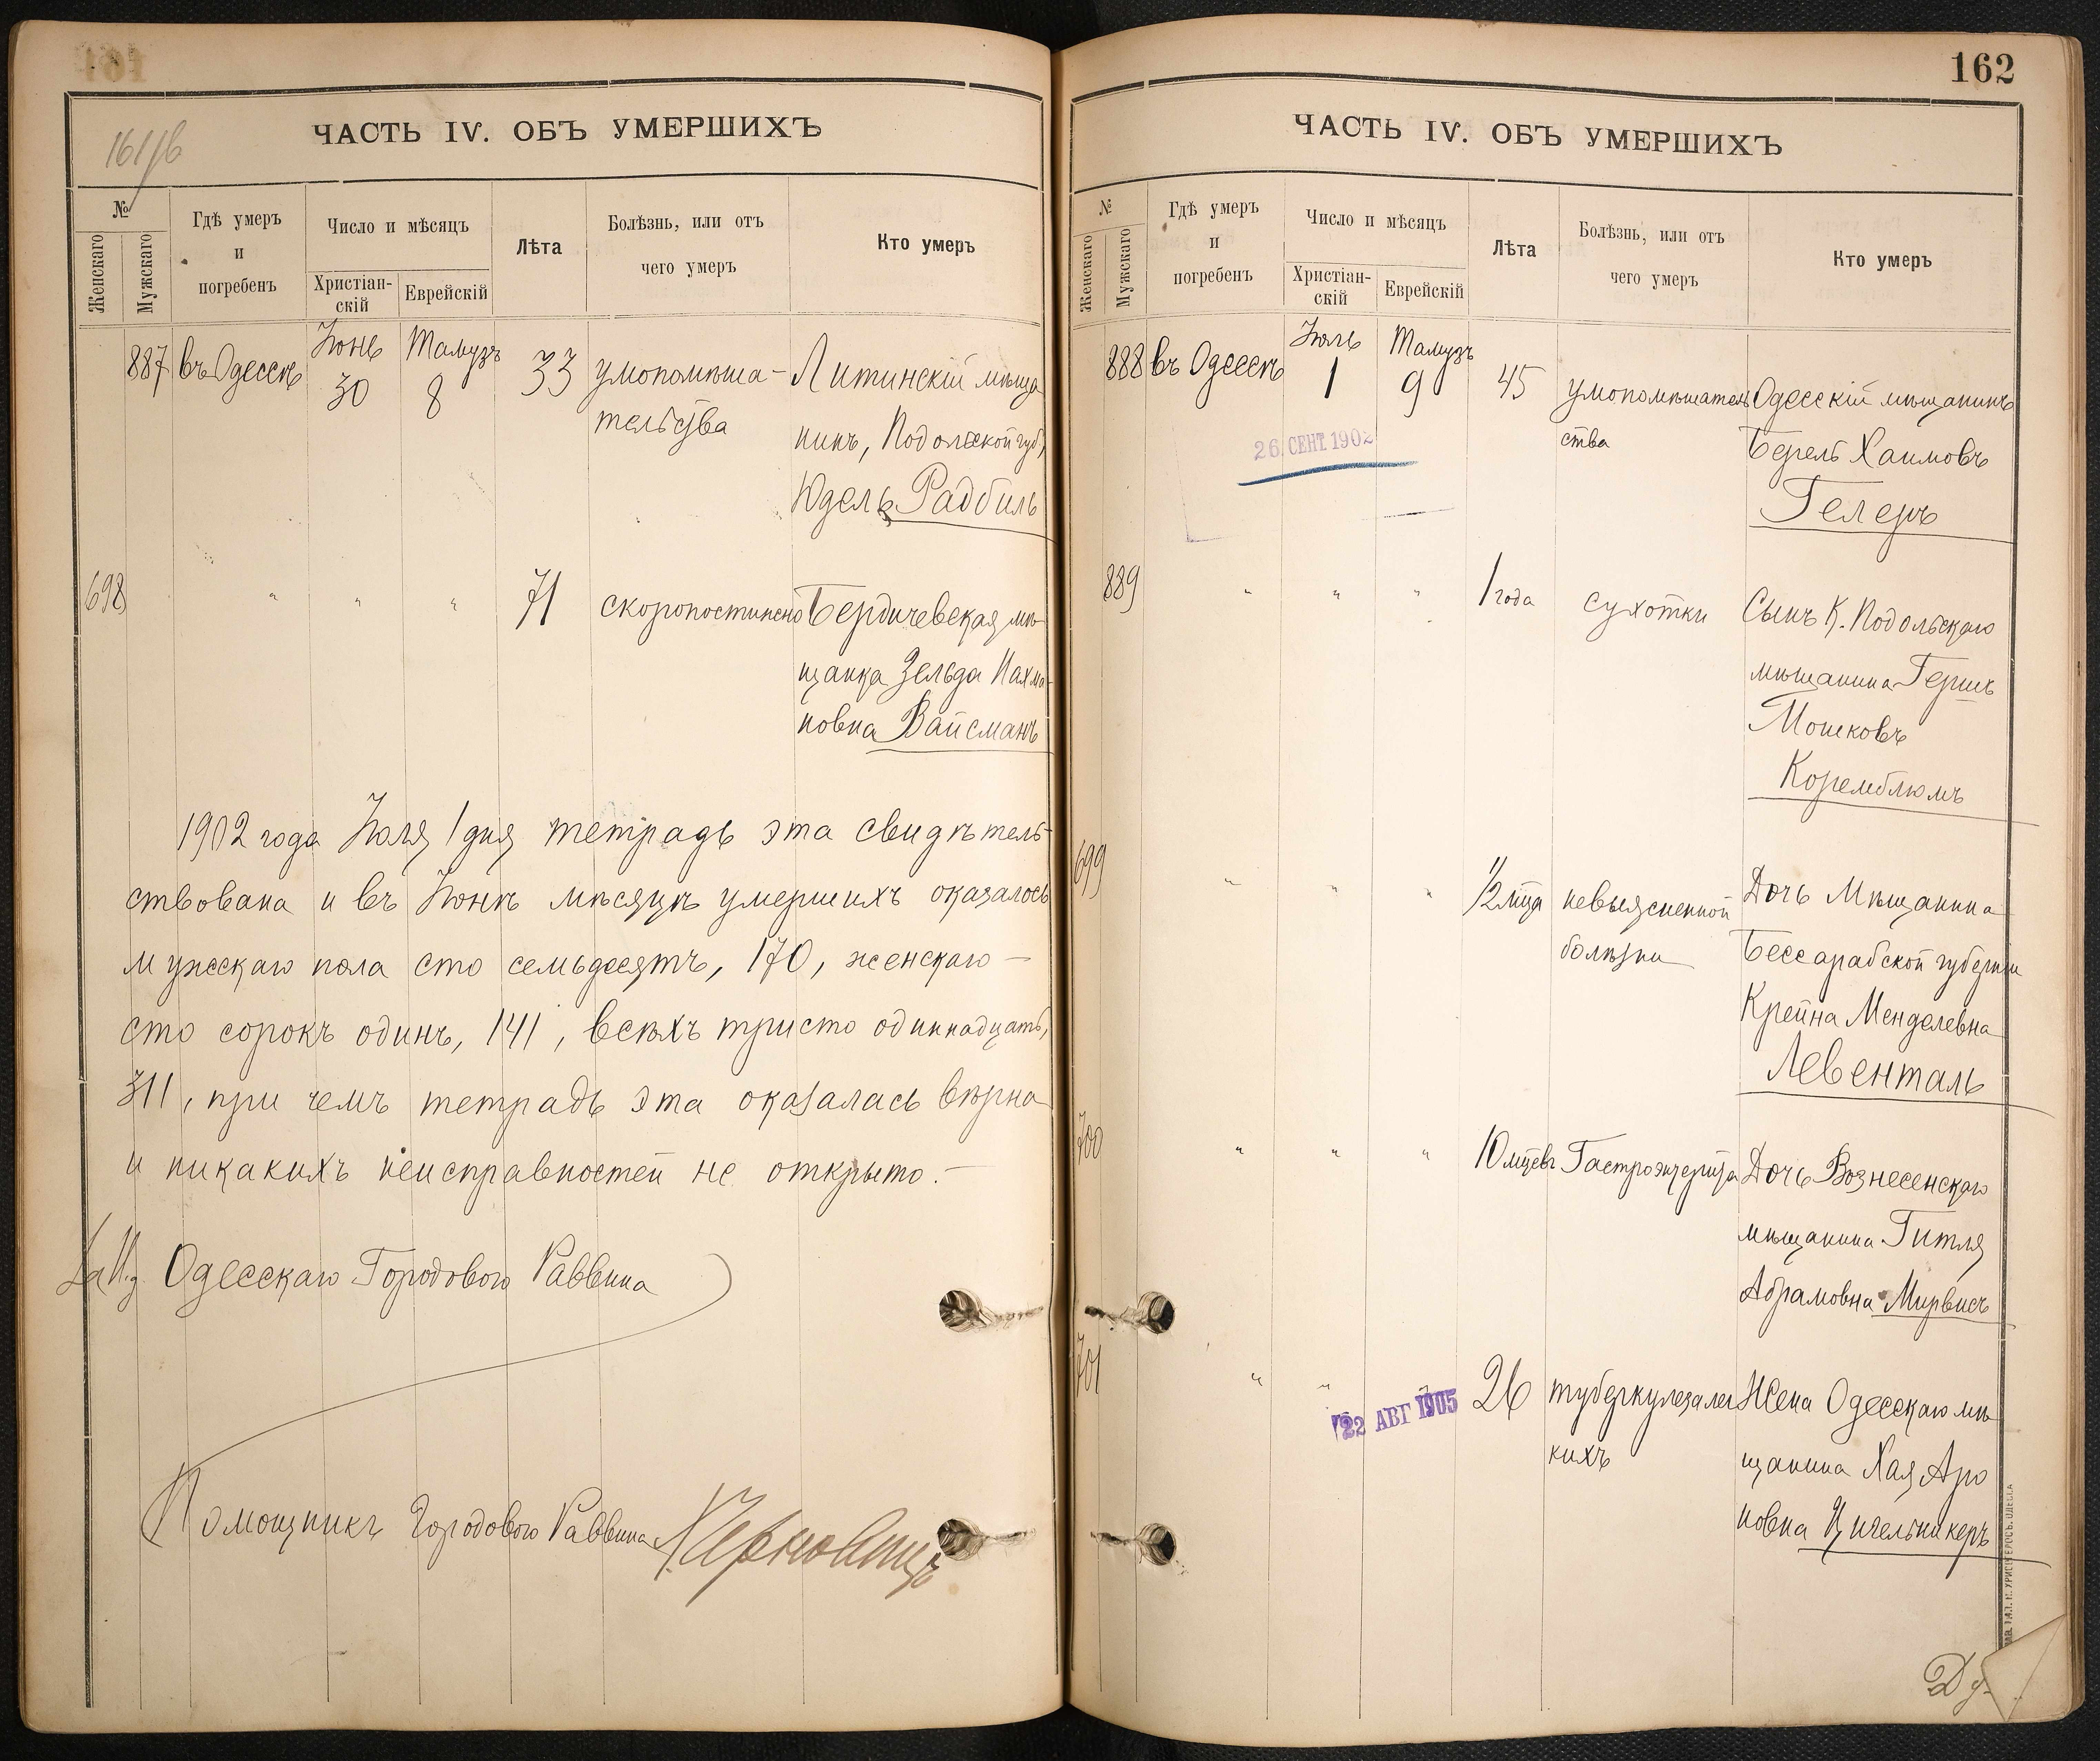 161/б
ЧАСТЬ IV. ОБЪ УМЕРШИХЪ
№
Женскаго
Мужскаго
Гдѣ умеръ
и
погребенъ
Число и мѣсяцъ
Христіан-
скій
Еврейскій
Лѣта
Болѣзнь, или отъ
чего умеръ
Кто умеръ
887 въ Одессѣ Іюнь 30 Тамузъ 8 33 умопомѣша-
тельства
Литинскій мѣща
нинъ, Подольской губ,
Юдель Радбиль
698 " " " 71 скоропостижно Бердичевская мѣ-
щанка Зельда Нахма-
новна Вайсманъ
1902 года Іюля 1 дня тетрадь эта свидѣтель-
ствована и въ Іюнѣ мѣсяцѣ умершихъ оказалось
мужскаго пола сто семьдесятъ, 170, женскаго —
сто сорокъ одинъ, 141, всѣхъ тристо одиннадцать,
311, при чемъ тетрадь эта оказалась вѣрна
и никакихъ неисправностей не открыто. —
За И.д. Одесскаго Городового Раввина
Помощникъ Городового Раввина
162
ЧАСТЬ IV. ОБЪ УМЕРШИХЪ
№
Женскаго
Мужскаго
Гдѣ умеръ
и
погребенъ
Число и мѣсяцъ
Христіан-
скій
Еврейскій
Лѣта
Болѣзнь, или отъ
чего умеръ
Кто умеръ
888 въ Одессѣ Іюль 1 Тамузъ 9 45 умопомѣшатель
ства
Одесскій мѣщанинъ
Берель Хаимовъ
Гелеръ
26 СЕНТ 1902
889 " " " 1 года сухотки Сынъ К. Подольскаго
мѣщанина Гершъ
Мошковъ
Коремблюмъ
699 " " " 1/2 мца невыясненной
болѣзни
Дочь Мѣщанина
Бессарабской губерніи
Крейна Менделевна
Левенталь
700 " " " 10 мцевъ Гастроэнтерита Дочь Вознесенскаго
мѣщанина Гитля
Абрамовна Мирвисъ
701 " " " 26 туберкулеза лег
кихъ
Жена Одесскаго мѣ
щанина Хая Аро
новна Цичельникеръ
22 АВГ 1905